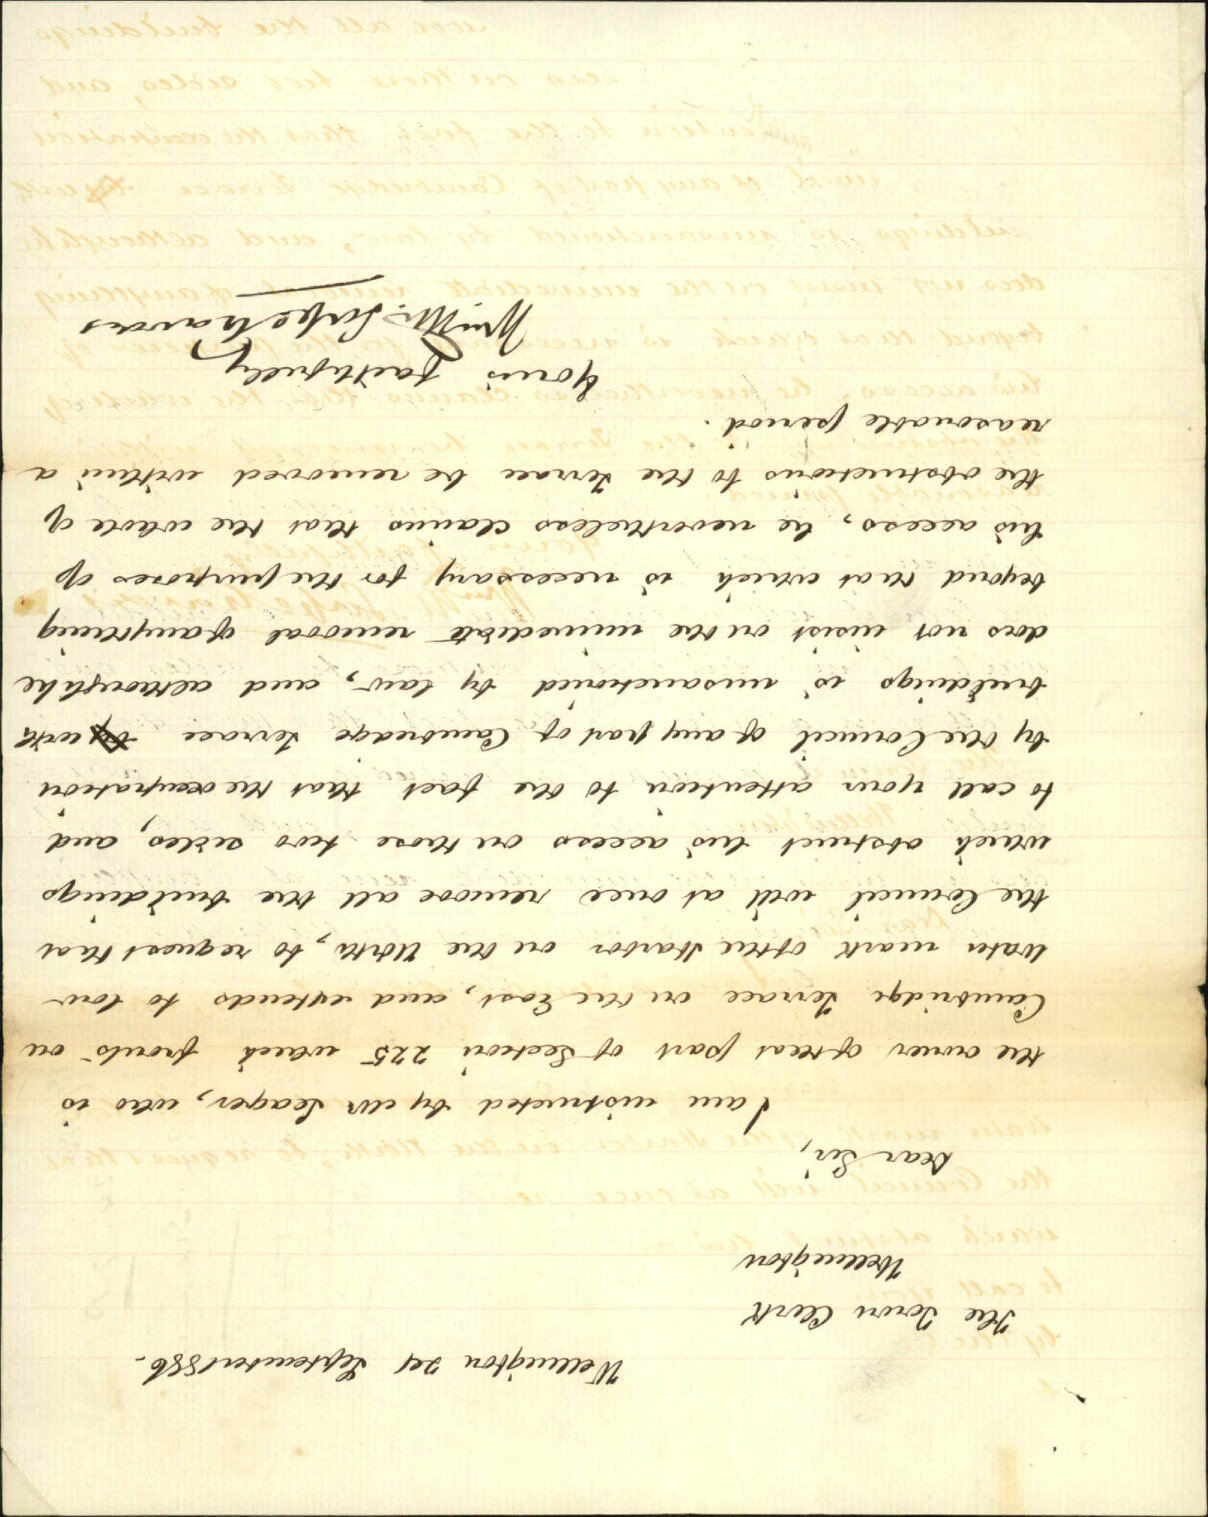 Wellington 24 September 1886.
The Town Clerk
Wellington
Dear Sir,
I am instructed by Mr Seager, who is
the owner of that part of Section 225 which fronts on
Cambridge Terrace on the East, and extends to low
water mark of the Harbor on the North, to request that
the Council will at once remove all the buildings
which obstruct his access on those two sides, and
to call your attention to the fact that the occupation
by the Council of any part of Cambridge Terrace with
buildings is unsanctioned by law, and although he
does not insist on the immediate removal of anything
beyond that which is necessary for the purposes of
his access, he nevertheless claims that the whole of
the obstructions to the Terrace be removed within a
reasonable period.
Yours faithfully
Wm.